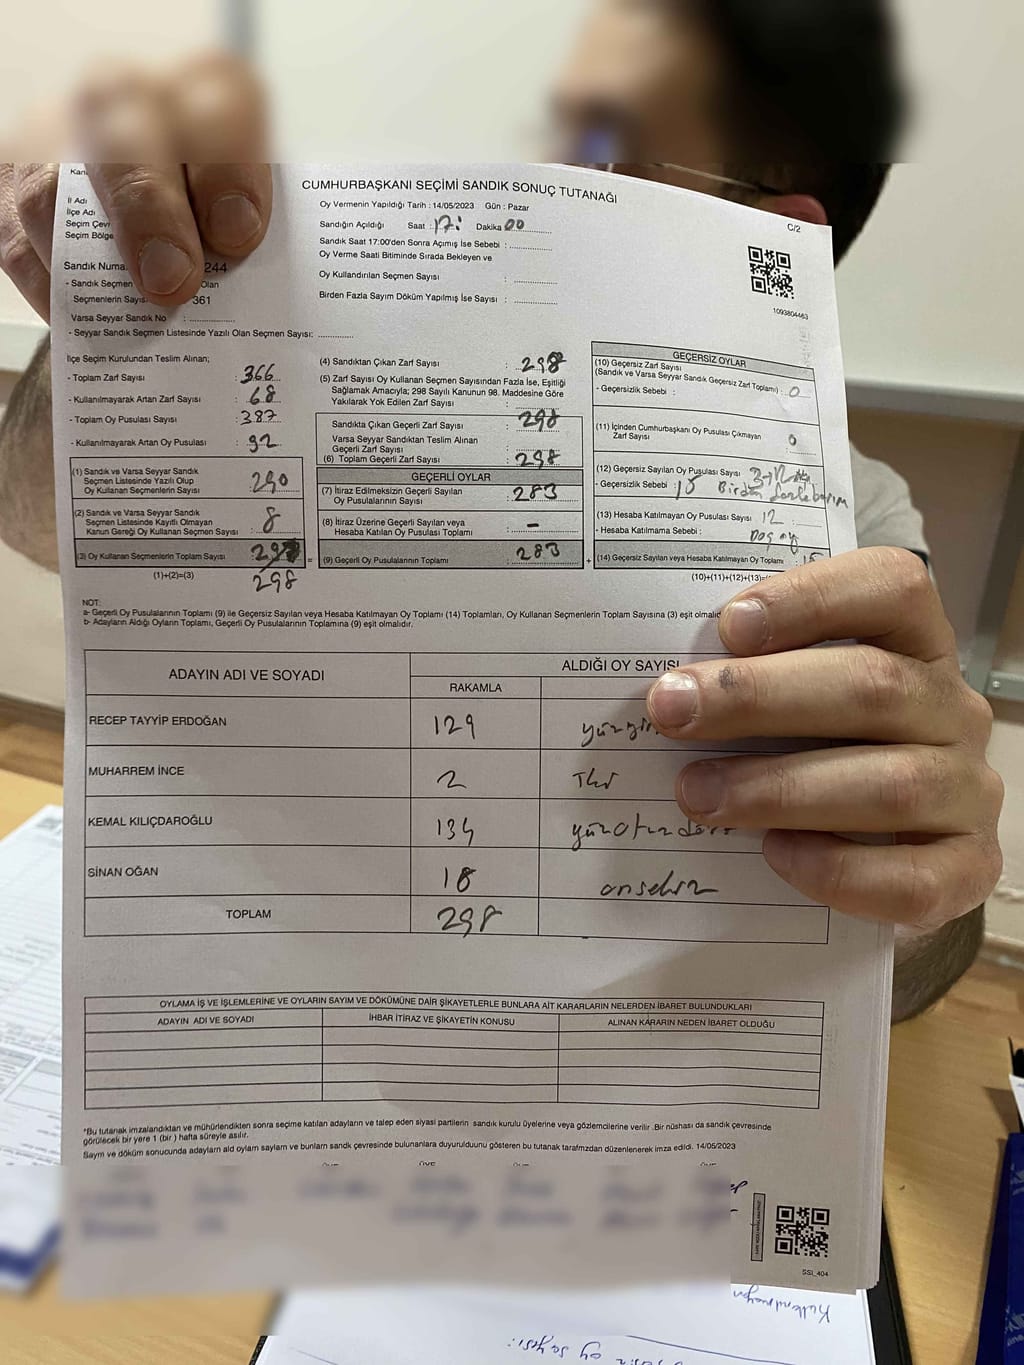 CUMHURBAŞKANI SEÇİMİ SANDIK SONUÇ TUTANAĞI
C/2
İl Adı
İlçe Adı
Seçim Çevr
Seçim Bölge
Oy Vermenin Yapıldığı Tarih : 14/05/2023 Gün : Pazar
Sandığın Açıldığı Saat : 17: Dakika 00
Sandık Saat 17:00'den Sonra Açımış İse Sebebi :
Oy Verme Saati Bitiminde Sırada Bekleyen ve
Oy Kullandırılan Seçmen Sayısı :
Birden Fazla Sayım Döküm Yapılmış İse Sayısı :
1093804463
Sandık Numa 244
- Sandık Seçmen Olan
Seçmenlerin Sayıs 361
Varsa Seyyar Sandık No :
- Seyyar Sandık Seçmen Listesinde Yazılı Olan Seçmen Sayısı:
İlçe Seçim Kurulundan Teslim Alınan;
- Toplam Zarf Sayısı : 366
- Kullanılmayarak Artan Zarf Sayısı : 68
- Toplam Oy Pusulası Sayısı : 387
- Kullanılmayarak Artan Oy Pusulası : 92
(1) Sandık ve Varsa Seyyar Sandık
Seçmen Listesinde Yazılı Olup
Oy Kullanan Seçmenlerin Sayısı : 290
(2) Sandık ve Varsa Seyyar Sandık
Seçmen Listesinde Kayıtlı Olmayan
Kanun Gereği Oy Kullanan Seçmen Sayısı : 8
(3) Oy Kullanan Seçmenlerin Toplam Sayısı
(1)+(2)=(3) 298
(4) Sandıktan Çıkan Zarf Sayısı : 298
(5) Zarf Sayısı Oy Kullanan Seçmen Sayısından Fazla İse, Eşitliği
Sağlamak Amacıyla; 298 Sayılı Kanunun 98. Maddesine Göre
Yakılarak Yok Edilen Zarf Sayısı :
Sandıkta Çıkan Geçerli Zarf Sayısı : 298
Varsa Seyyar Sandıktan Teslim Alınan
Geçerli Zarf Sayısı :
(6) Toplam Geçerli Zarf Sayısı : 298
GEÇERLİ OYLAR
(7) İtiraz Edilmeksizin Geçerli Sayılan
Oy Pusulalarının Sayısı : 283
(8) İtiraz Üzerine Geçerli Sayılan veya
Hesaba Katılan Oy Pusulası Toplamı : -
(9) Geçerli Oy Pusulalarının Toplamı : 283
GEÇERSİZ OYLAR
(10) Geçersiz Zarf Sayısı
(Sandık ve Varsa Seyyar Sandık Geçersiz Zarf Toplamı) : 0
- Geçersizlik Sebebi :
(11) İçinden Cumhurbaşkanı Oy Pusulası Çıkmayan
Zarf Sayısı : 0
(12) Geçersiz Sayılan Oy Pusulası Sayısı
- Geçersizlik Sebebi : 15 Birden
(13) Hesaba Katılmayan Oy Pusulası Sayısı : 12
- Hesaba Katılmama Sebebi :
(14) Geçersiz Sayılan veya Hesaba Katılmayan Oy Toplamı : 15
(10)+(11)+(12)+(13)=
NOT:
a- Geçerli Oy Pusulalarının Toplamı (9) ile Geçersiz Sayılan veya Hesaba Katılmayan Oy Toplamı (14) Toplamları, Oy Kullanan Seçmenlerin Toplam Sayısına (3) eşit olmalıd
b- Adayların Aldığı Oyların Toplamı, Geçerli Oy Pusulalarının Toplamına (9) eşit olmalıdır.
ADAYIN ADI VE SOYADI ALDIĞI OY SAYISI
RAKAMLA
RECEP TAYYİP ERDOĞAN 129
MUHARREM İNCE 2
KEMAL KILIÇDAROĞLU 134
SİNAN OĞAN 18 onsekiz
TOPLAM 298
OYLAMA İŞ VE İŞLEMLERİNE VE OYLARIN SAYIM VE DÖKÜMÜNE DAİR ŞİKAYETLERLE BUNLARA AİT KARARLARIN NELERDEN İBARET BULUNDUKLARI
ADAYIN ADI VE SOYADI İHBAR İTİRAZ VE ŞİKAYETİN KONUSU ALINAN KARARIN NEDEN İBARET OLDUĞU
*Bu tutanak imzalandıktan ve mühürlendikten sonra seçime katılan adayların ve talep eden siyasi partilerin sandık kurulu üyelerine veya gözlemcilerine verilir .Bir nüshası da sandık çevresinde
görülecek bir yere 1 (bir ) hafta süreyle asılır.
Sayım ve döküm sonucunda adayların ald oyların saylam ve bunların sandk çevresinde bulunanlara duyurulduunu gösteren bu tutanak tarafmzdan düzenlenerek imza edildi. 14/05/2023
SSI_404
oy sayısı: